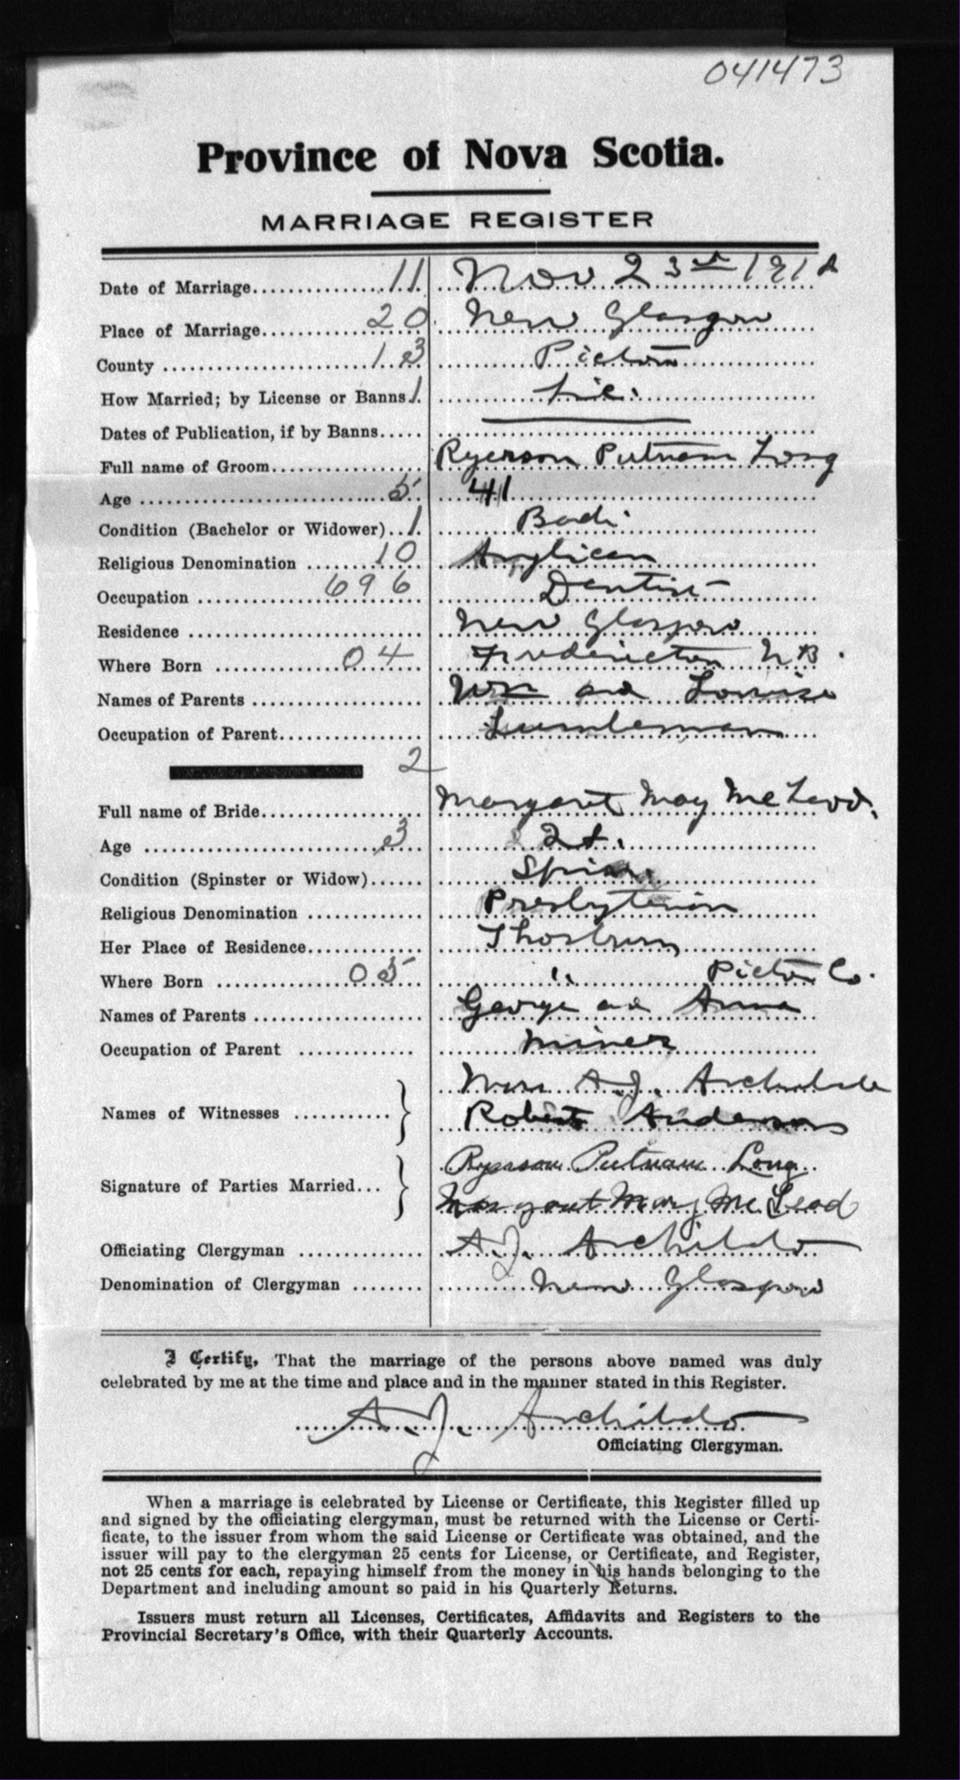 041473
Province of Nova Scotia.
MARRIAGE REGISTER
Date of Marriage 11 Nov 23rd 191
Place of Marriage 20 New Glasgow
County 13 Pictou
How Married; by License or Banns 1 Lic.
Dates of Publication, if by Banns
Full name of Groom Ryerson Putnam Long
Age 5 41
Condition (Bachelor or Widower) 1 Bach.
Religious Denomination 10 Anglican
Occupation 696 Dentist
Residence New Glasgow
Where Born 04 Fredericton N.B.
Names of Parents Wm and Louise
Occupation of Parent Lumberman
2
Full name of Bride Margaret May McLeod.
Age 3
Condition (Spinster or Widow) Spin.
Religious Denomination Presbyterian
Her Place of Residence Thorburn
Where Born 05 " Pictou Co.
Names of Parents George and Anna
Occupation of Parent Miner
Names of Witnesses A.J. Archibald
Robert Anderson
Signature of Parties Married... Ryerson Putnam Long
Margaret May McLeod
Officiating Clergyman A.J. Archibald
Denomination of Clergyman New Glasgow
I Certify, That the marriage of the persons above named was duly
celebrated by me at the time and place and in the manner stated in this Register.
A.J. Archibald
Officiating Clergyman.
When a marriage is celebrated by License or Certificate, this Register filled up
and signed by the officiating clergyman, must be returned with the License or Certi-
ficate, to the issuer from whom the said License or Certificate was obtained, and the
issuer will pay to the clergyman 25 cents for License, or Certificate, and Register,
not 25 cents for each, repaying himself from the money in his hands belonging to the
Department and including amount so paid in his Quarterly Returns.
Issuers must return all Licenses, Certificates, Affidavits and Registers to the
Provincial Secretary's Office, with their Quarterly Accounts.